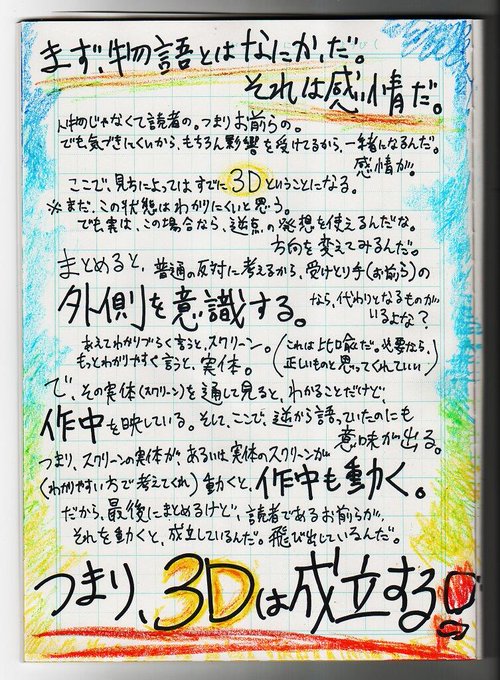 まず、物語とはなにか、だ。
それは感情だ。
人物じゃなくて読者の。つまりお前らの。
でも気づきにくいから、もちろん影響を受けてるから、一緒になるんだ。
感情が。
ここで、見方によってはすでに3Dということになる。
※まだ、この状態はわかりにくいと思う。
でも実は、この場合なら、逆点の発想を使えるんだな。
方向を変えてみるんだ。
まとめると、普通の反対に考えるから、受けとり手(お前ら)の
外側を意識する。
なら、代わりとなるものが
いるよな?
あえてわかりづらく言うと、スクリーン。
もっとわかりやすく言うと、実体。
(これは比喩だ。必要なら、
正しいものと思ってくれていい)
で、その実体(スクリーン)を通して見ると、わかることだけど、
作中を映している。そして、ここで、逆から語っていたのにも
意味が出る。
つまり、スクリーンの実体が、あるいは実体のスクリーンが
(わかりやすい方で考えてくれ)動くと、作中も動く。
だから、最後にまとめるけど、読者であるお前らが、
それを動くと、成立しているんだ。飛び出しているんだ。
つまり、3Dは成立する!